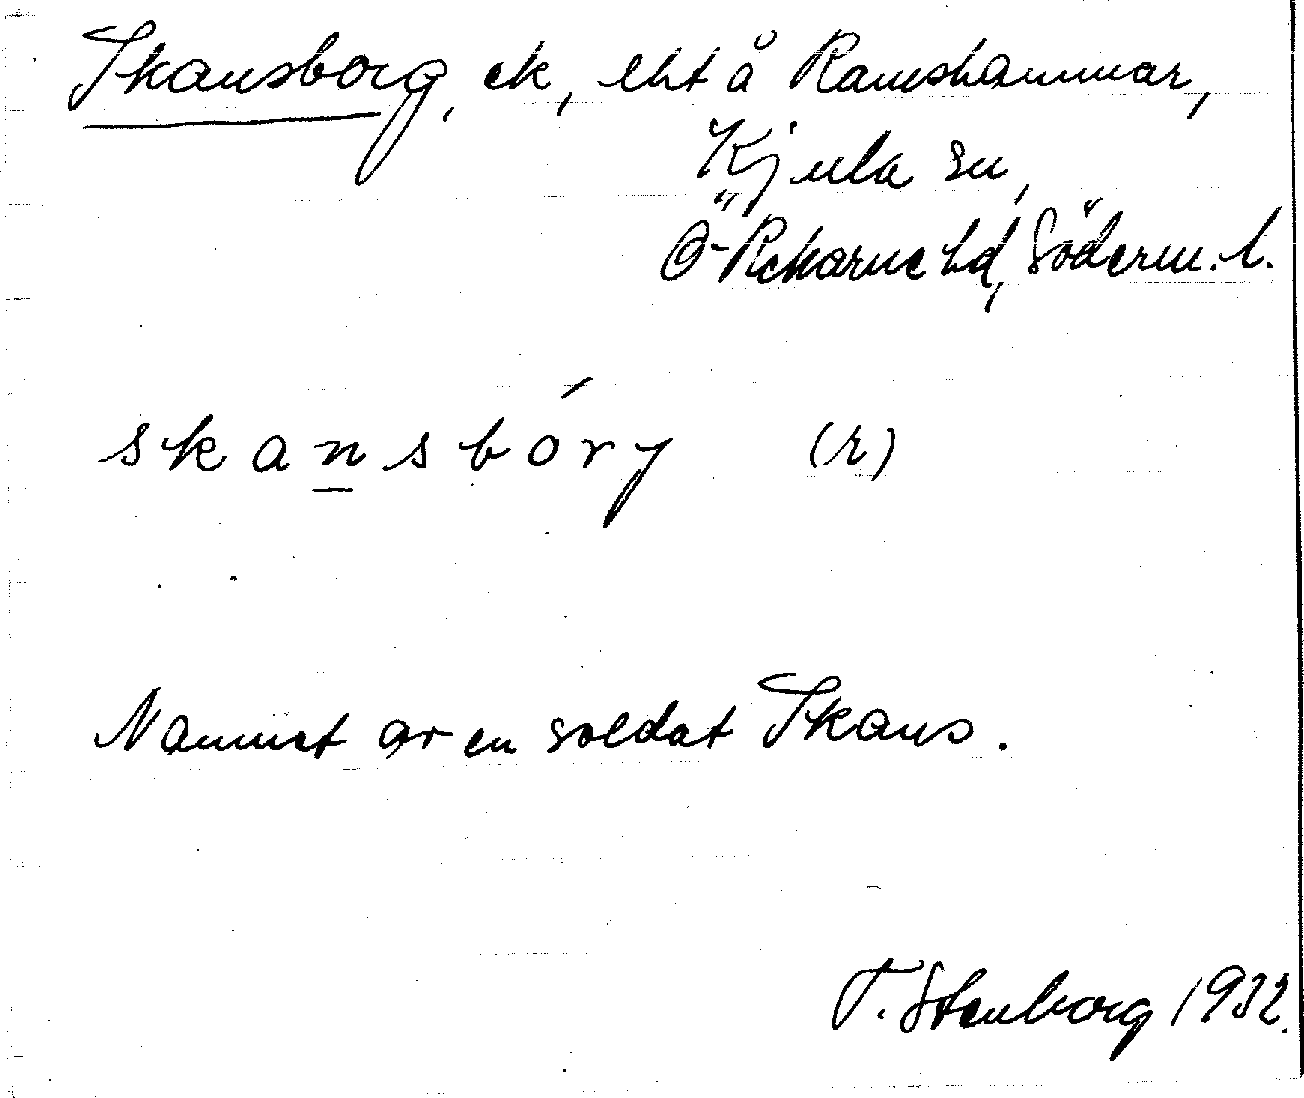 Skansborg, ck, lht å Ramshammar,
Kjula sn,
Ö-Rekarne hd, Söderm. l.
skansbóry (r)
Namnet av en soldat Skans.
T. Stenborg 1932.